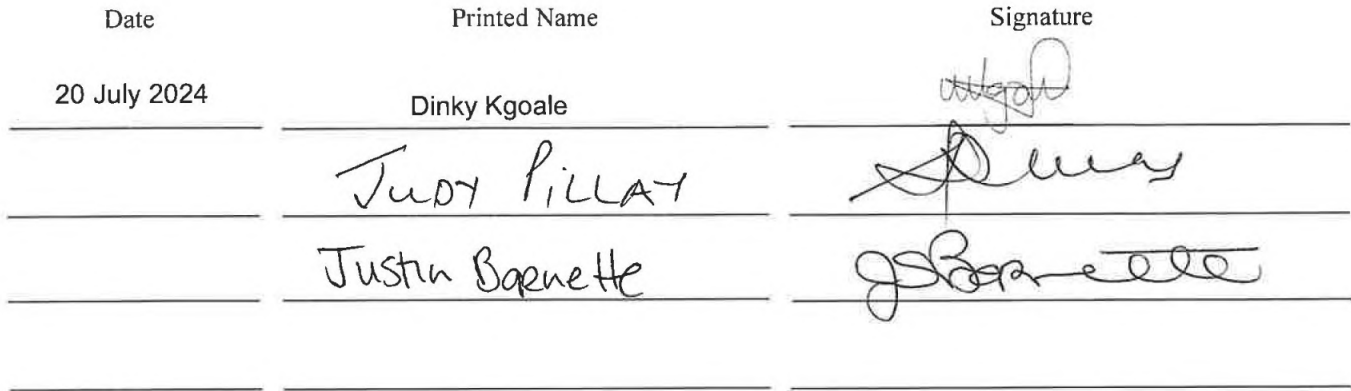 Date Printed Name Signature
20 July 2024 Dinky Kgoale
JUDY PILLAY
Justin Barnette JSBarnette